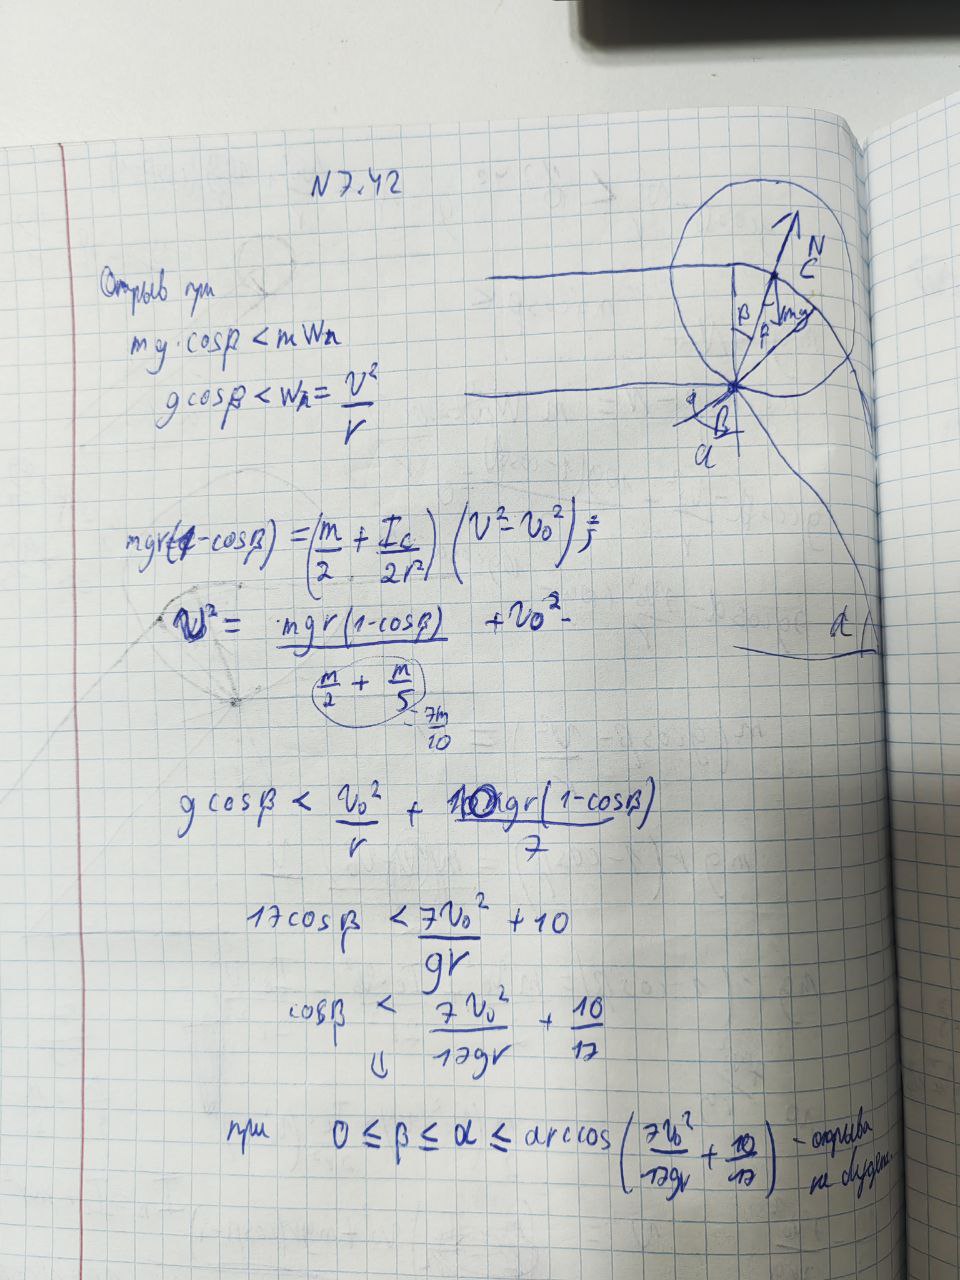 N 7.42
Отрыв при
mg·cosβ < m Wn
g cosβ < Wn = v²/r
mgr(1-cosβ) = (m/2 + Ic/2r²) (v² - v₀²);
v² = mgr(1-cosβ) / (m/2 + m/5) + v₀²
7m/10
g cosβ < v₀²/r + 10gr(1-cosβ)/7
17cosβ < 7v₀²/gr + 10
cosβ < 7v₀²/17gr + 10/17
⇓
при 0 ≤ β ≤ α ≤ arccos(7v₀²/17gr + 10/17) - отрыва
не будет
N
C
β
β
mg
β
α
α